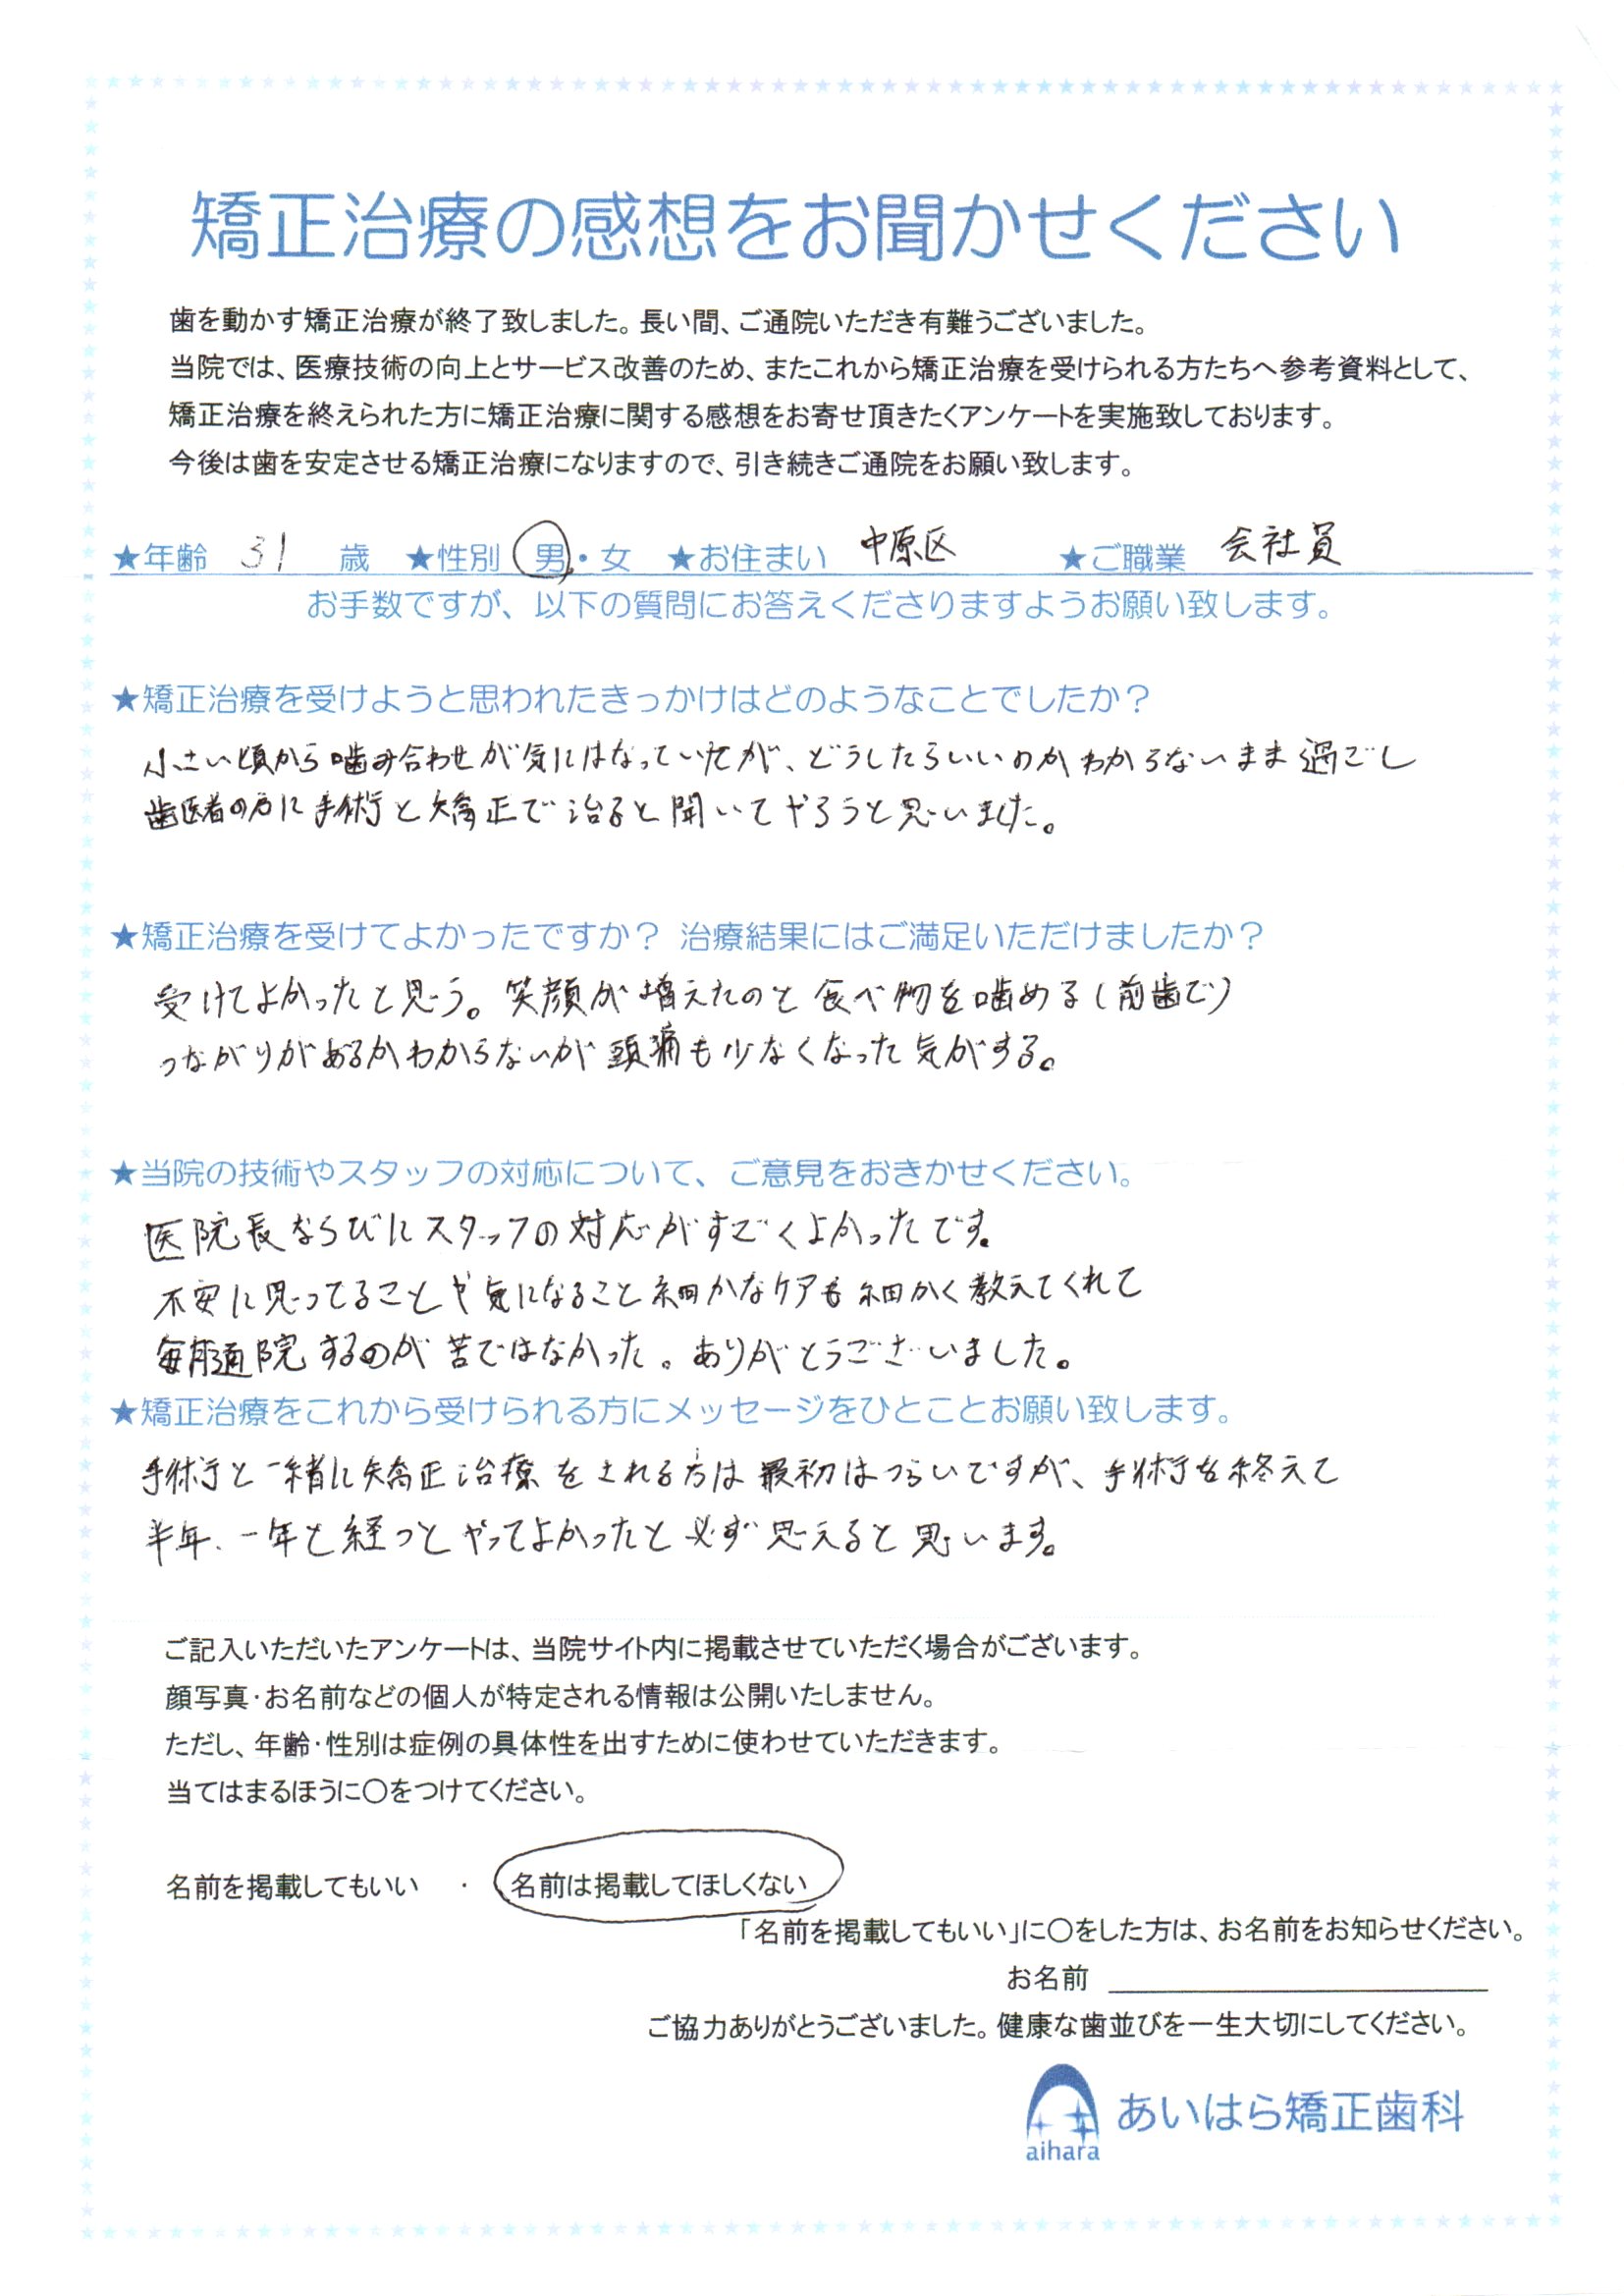 矯正治療の感想をお聞かせください
歯を動かす矯正治療が終了致しました。長い間、ご通院いただき有難うございました。
当院では、医療技術の向上とサービス改善のため、またこれから矯正治療を受けられる方たちへ参考資料として、
矯正治療を終えられた方に矯正治療に関する感想をお寄せ頂きたくアンケートを実施致しております。
今後は歯を安定させる矯正治療になりますので、引き続きご通院をお願い致します。
★年齢 31 歳 ★性別 男・女 ★お住まい 中原区 ★ご職業 会社員
お手数ですが、以下の質問にお答えくださりますようお願い致します。
★矯正治療を受けようと思われたきっかけはどのようなことでしたか？
小さい頃から噛み合わせが気にはなっていたが、どうしたらいいのかわからないまま過ごし
歯医者の方に手術と矯正で治ると聞いてやろうと思いました。
★矯正治療を受けてよかったですか？ 治療結果にはご満足いただけましたか？
受けてよかったと思う。笑顔が増えたのと食べ物を噛める(前歯で)
つながりがあるかわからないが頭痛も少なくなった気がする。
★当院の技術やスタッフの対応について、ご意見をおきかせください。
医院長ならびにスタッフの対応がすごくよかったです。
不安に思ってることや気になること細かなケアも細かく教えてくれて
毎月通院するのが苦ではなかった。ありがとうございました。
★矯正治療をこれから受けられる方にメッセージをひとことお願い致します。
手術と一緒に矯正治療をされる方は最初はつらいですが、手術を終えて
半年、一年と経つとやってよかったと必ず思えると思います。
ご記入いただいたアンケートは、当院サイト内に掲載させていただく場合がございます。
顔写真・お名前などの個人が特定される情報は公開いたしません。
ただし、年齢・性別は症例の具体性を出すために使わせていただきます。
当てはまるほうに〇をつけてください。
名前を掲載してもいい ・ 名前は掲載してほしくない
「名前を掲載してもいい」に〇をした方は、お名前をお知らせください。
お名前
ご協力ありがとうございました。健康な歯並びを一生大切にしてください。
aihara あいはら矯正歯科